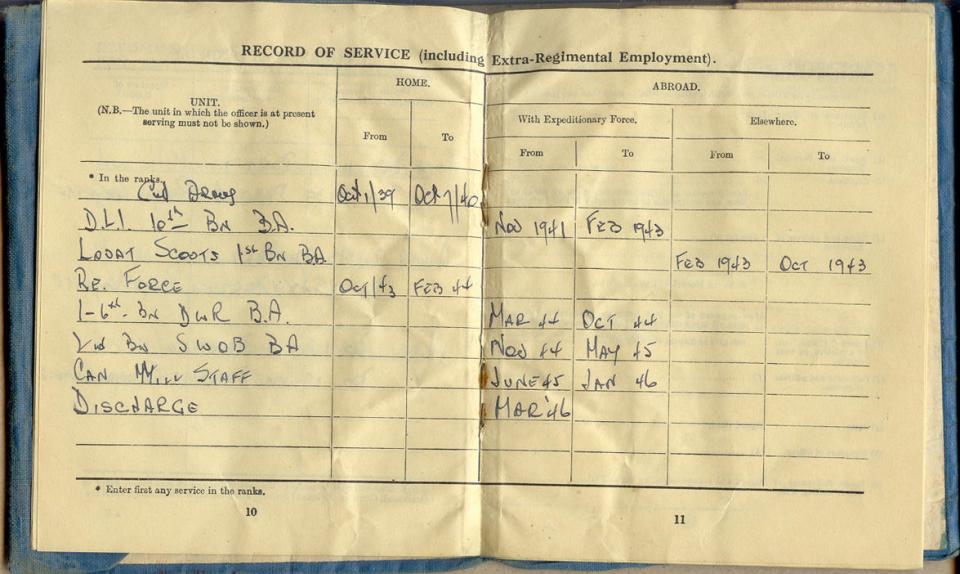 RECORD OF SERVICE (including Extra-Regimental Employment).
HOME. ABROAD.
UNIT.
(N.B.—The unit in which the officer is at present
serving must not be shown.)
With Expeditionary Force. Elsewhere.
From To From To From To
* In the ranks.
Oct 1/39 Oct 7/40
D.L.I. 10th BN B.A. NOV 1941 FEB 1943
LOVAT SCOUTS 1st BN BA FEB 1943 OCT 1943
RE. FORCE OCT/43 FEB 44
1-6th BN DWR B.A. MAR 44 OCT 44
BN SWOB BA NOV 44 MAY 45
CAN STAFF JUNE 45 JAN 46
DISCHARGE MAR '46
* Enter first any service in the ranks.
10 11